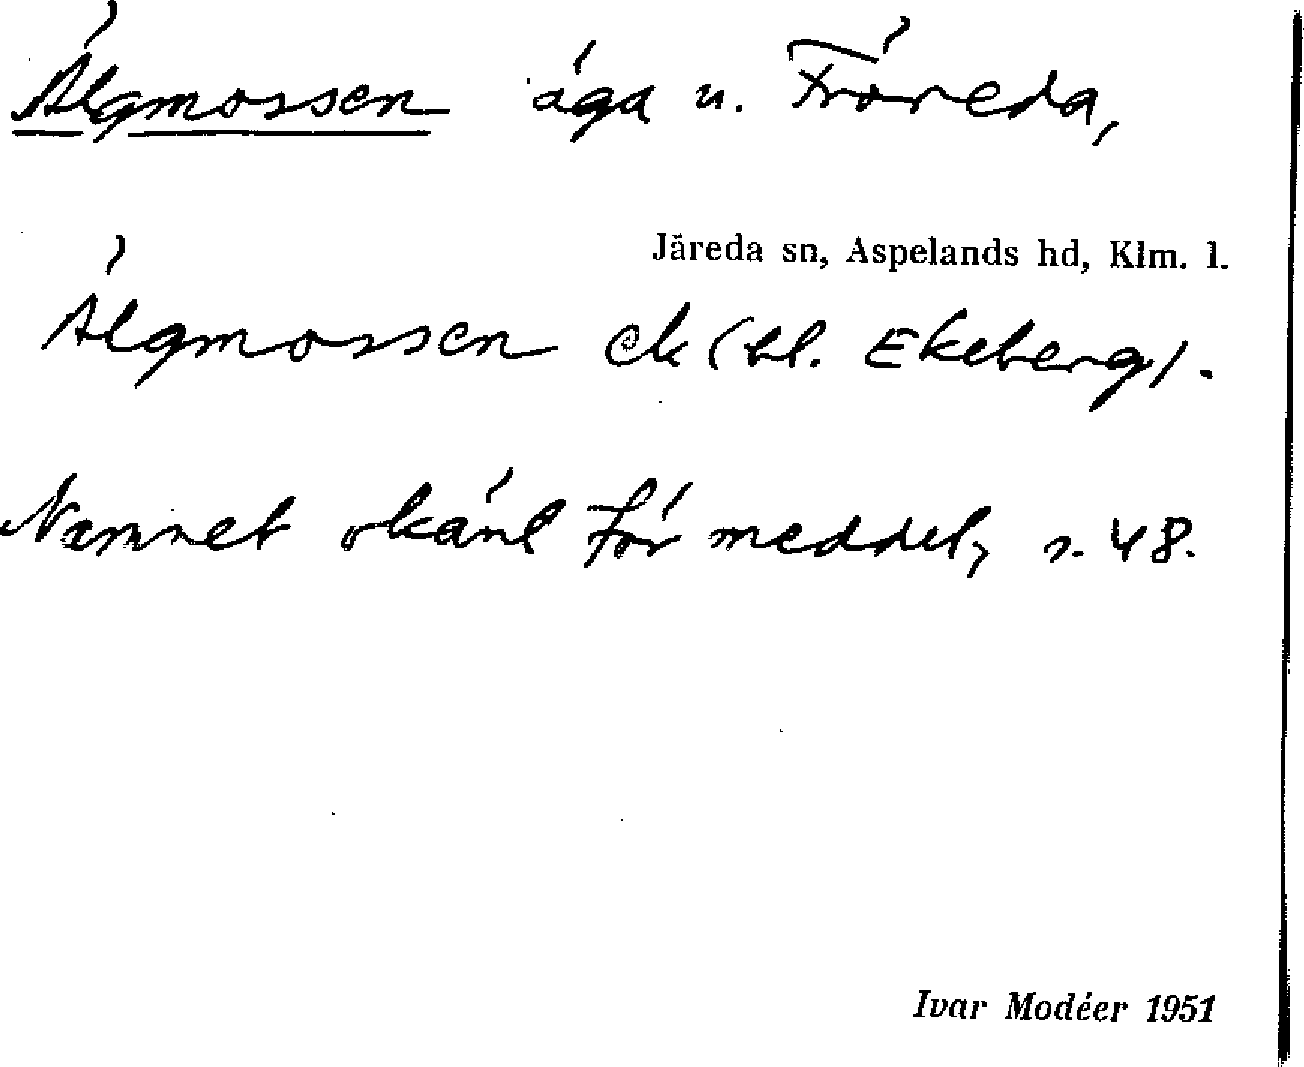 Älgmossen äga u. Fröreda,
Järeda sn, Aspelands hd, Klm. l.
Älgmossen ek (bl. Ekeberg).
Namnet okänt för meddel, s. 48.
Ivar Modéer 1951